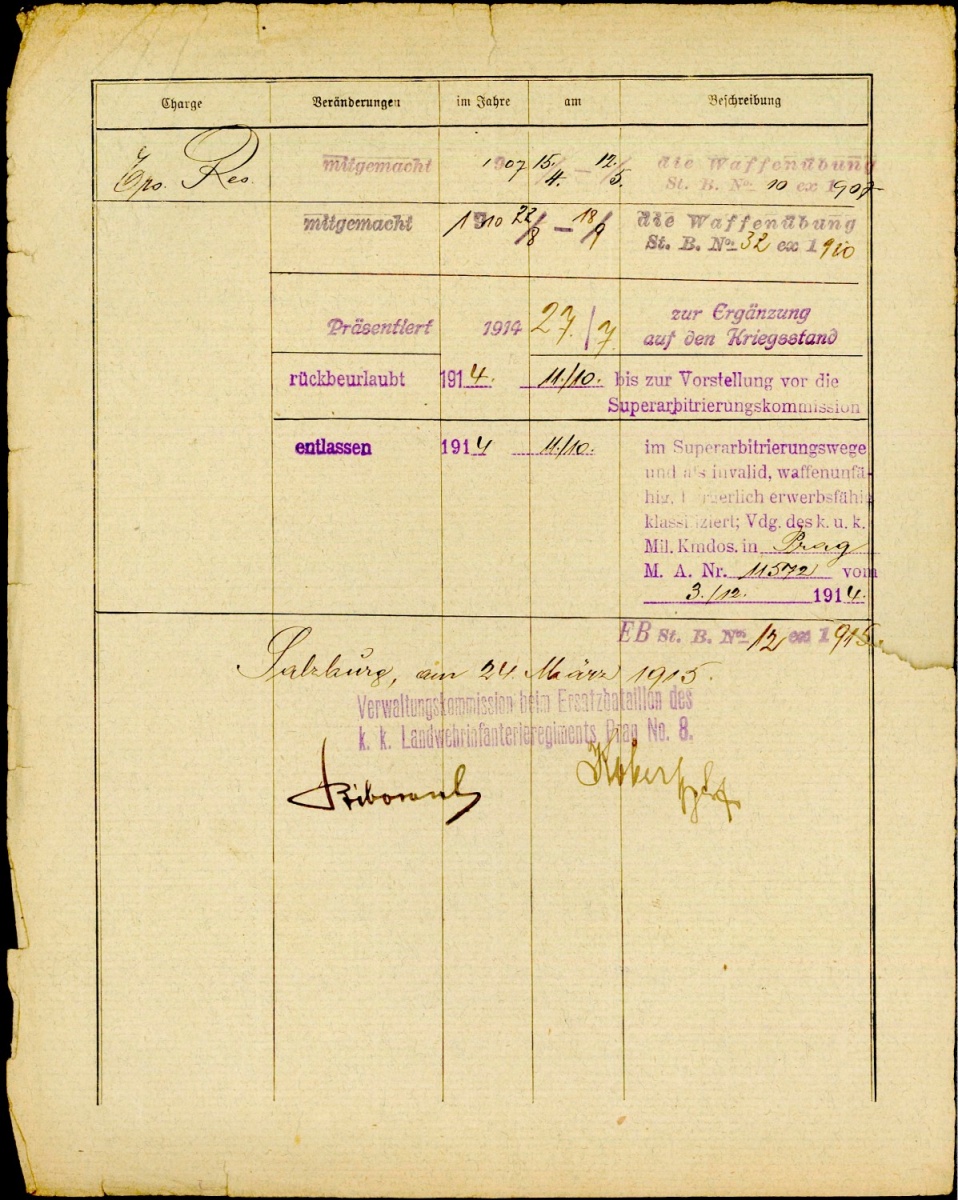 Charge Veränderungen im Jahre am Beschreibung
Res. mitgemacht 1907 15./4. – 12./5. die Waffenübung
St. B. No. 10 ex 190
mitgemacht 1910 22/8 – 18/9 die Waffenübung
St. B. No. 32 ex 1910
Präsentiert 1914 27/7. zur Ergänzung
auf den Kriegsstand
rückbeurlaubt 1914. 11./10. bis zur Vorstellung vor die
Superarbitrierungskommission
entlassen 1914 11./10. im Superarbitrierungswege
und als invalid, waffenunfä-
hig, bürgerlich erwerbsfähig
klassifiziert; Vdg. des k. u. k.
Mil. Kmdos. in Prag
M. A. Nr. 11572 vom
3./12. 1914.
EB St. B. No. 12 ex 1915.
Salzburg, am 24. März 1915.
Verwaltungskommission beim Ersatzbataillon des
k. k. Landwehrinfanterieregiments Prag No. 8.